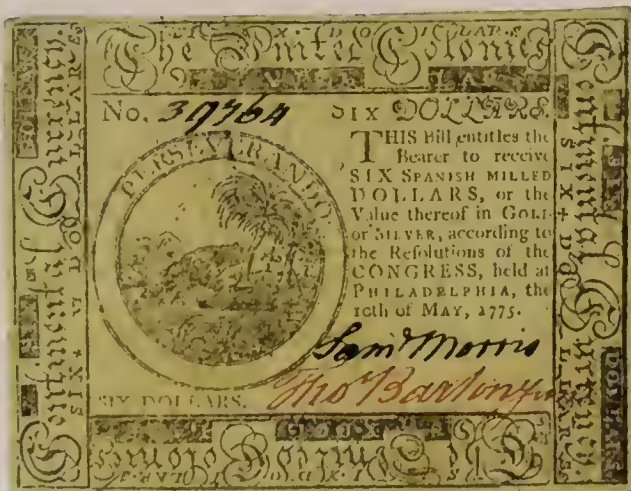 The United Colonies
No. 39764
SIX DOLLARS.
PERSEVERANDO
THIS Bill entitles the
Bearer to receive
SIX SPANISH MILLED
DOLLARS, or the
Value thereof in GOLD
or SILVER, according to
the Resolutions of the
CONGRESS, held at
PHILADELPHIA, the
10th of MAY, 1775.
Saml Morris
Tho Barton
SIX DOLLARS.
Continental Currency.
Continental Currency
The United Colonies